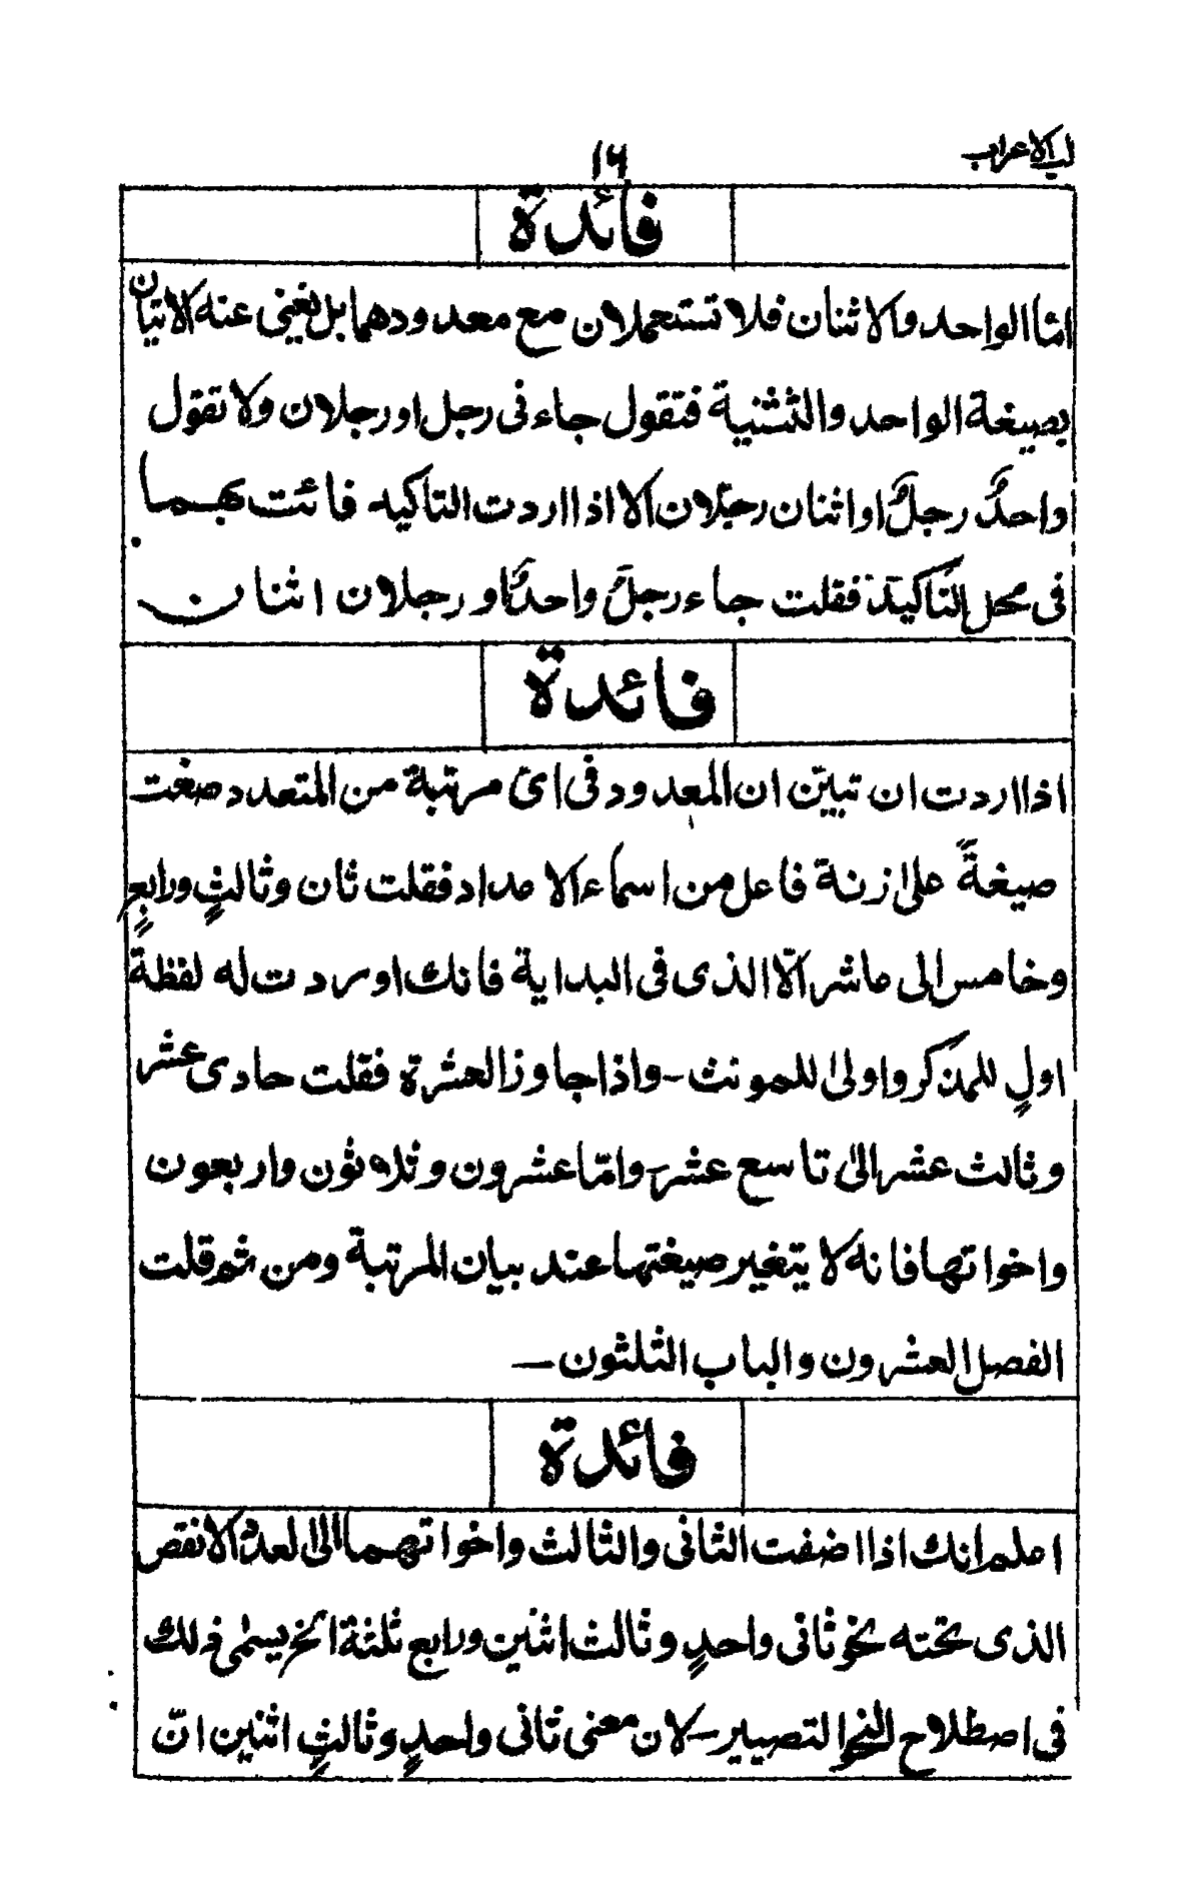 لب الاعراب
١٦
فائدة
امّا الواحد والاثنان فلا تستعملان مع معدودهما بل يغنى عنه الاتيان
بصيغة الواحد والتثنية فتقول جاءنى رجل او رجلان ولا تقول
واحدٌ رجلٌ او اثنان رجلان الا اذا اردت التاكيد فائت بهما
فى محل التاكيد فقلت جاء رجلٌ واحدٌ او رجلان اثنان
فائدة
اذا اردت ان تبيّن ان المعدود فى اىّ مرتبة من المتعدد صغت
صيغةً على زنة فاعل من اسماء الاعداد فقلت ثان وثالثٍ ورابعٍ
وخامس الى عاشر الّا الذى فى البداية فانك اوردت له لفظة
اولٍ للمذكر واولىٰ للمونث ـ واذا جاوز العشرة فقلت حادى عشر
وثالث عشر الىٰ تاسع عشر وامّا عشرون وثلاثون واربعون
واخواتها فانه لا يتغير صيغتها عند بيان المرتبة ومن ثم قلت
الفصل العشرون والباب الثلثون ـ
فائدة
اعلم انك اذا اضفت الثانى والثالث واخواتهما الى العدد الانقص
الذى تحته نحو ثانى واحدٍ وثالث اثنين ورابع ثلثة الخ يسمٰى ذلك
فى اصطلاح النحو التصيير ـ لان معنى ثانى واحدٍ وثالثٍ اثنين انّ